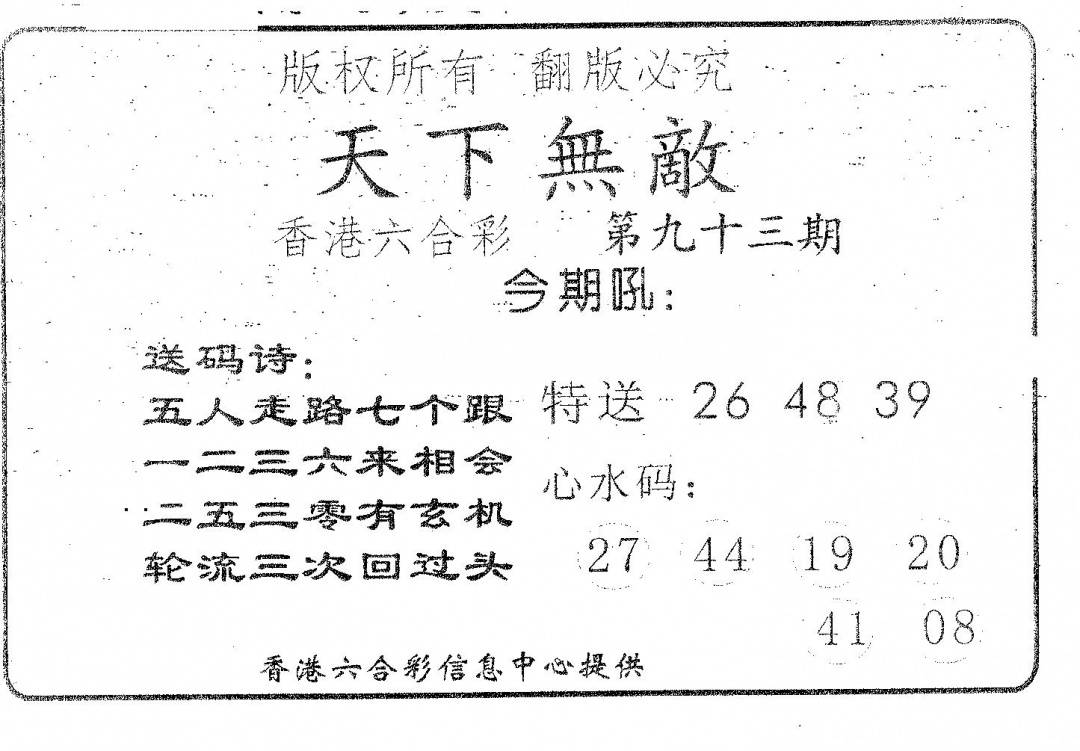 版权所有 翻版必究
天下無敵
香港六合彩 第九十三期
今期吼：
送码诗：
五人走路七个跟
一二三六来相会
二五三零有玄机
轮流三次回过头
特送 26 48 39
心水码：
27 44 19 20
41 08
香港六合彩信息中心提供